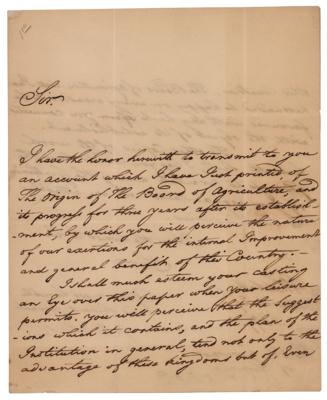 Sir.
I have the honor herewith to transmit to you
an account which I have Just printed, of
The Origin of The Board of Agriculture, and
its progress for three years after its establish-
-ment, by which you will perceive the nature
of our exertions for the internal Improvement
and general benefit of this Country:—
I shall much esteem your casting
an Eye over this paper when your leisure
permits. You will perceive that the Suggest-
-ions which it contains, and the plan of the
Institution in general, tend not only to the
advantage of these Kingdoms but of Even